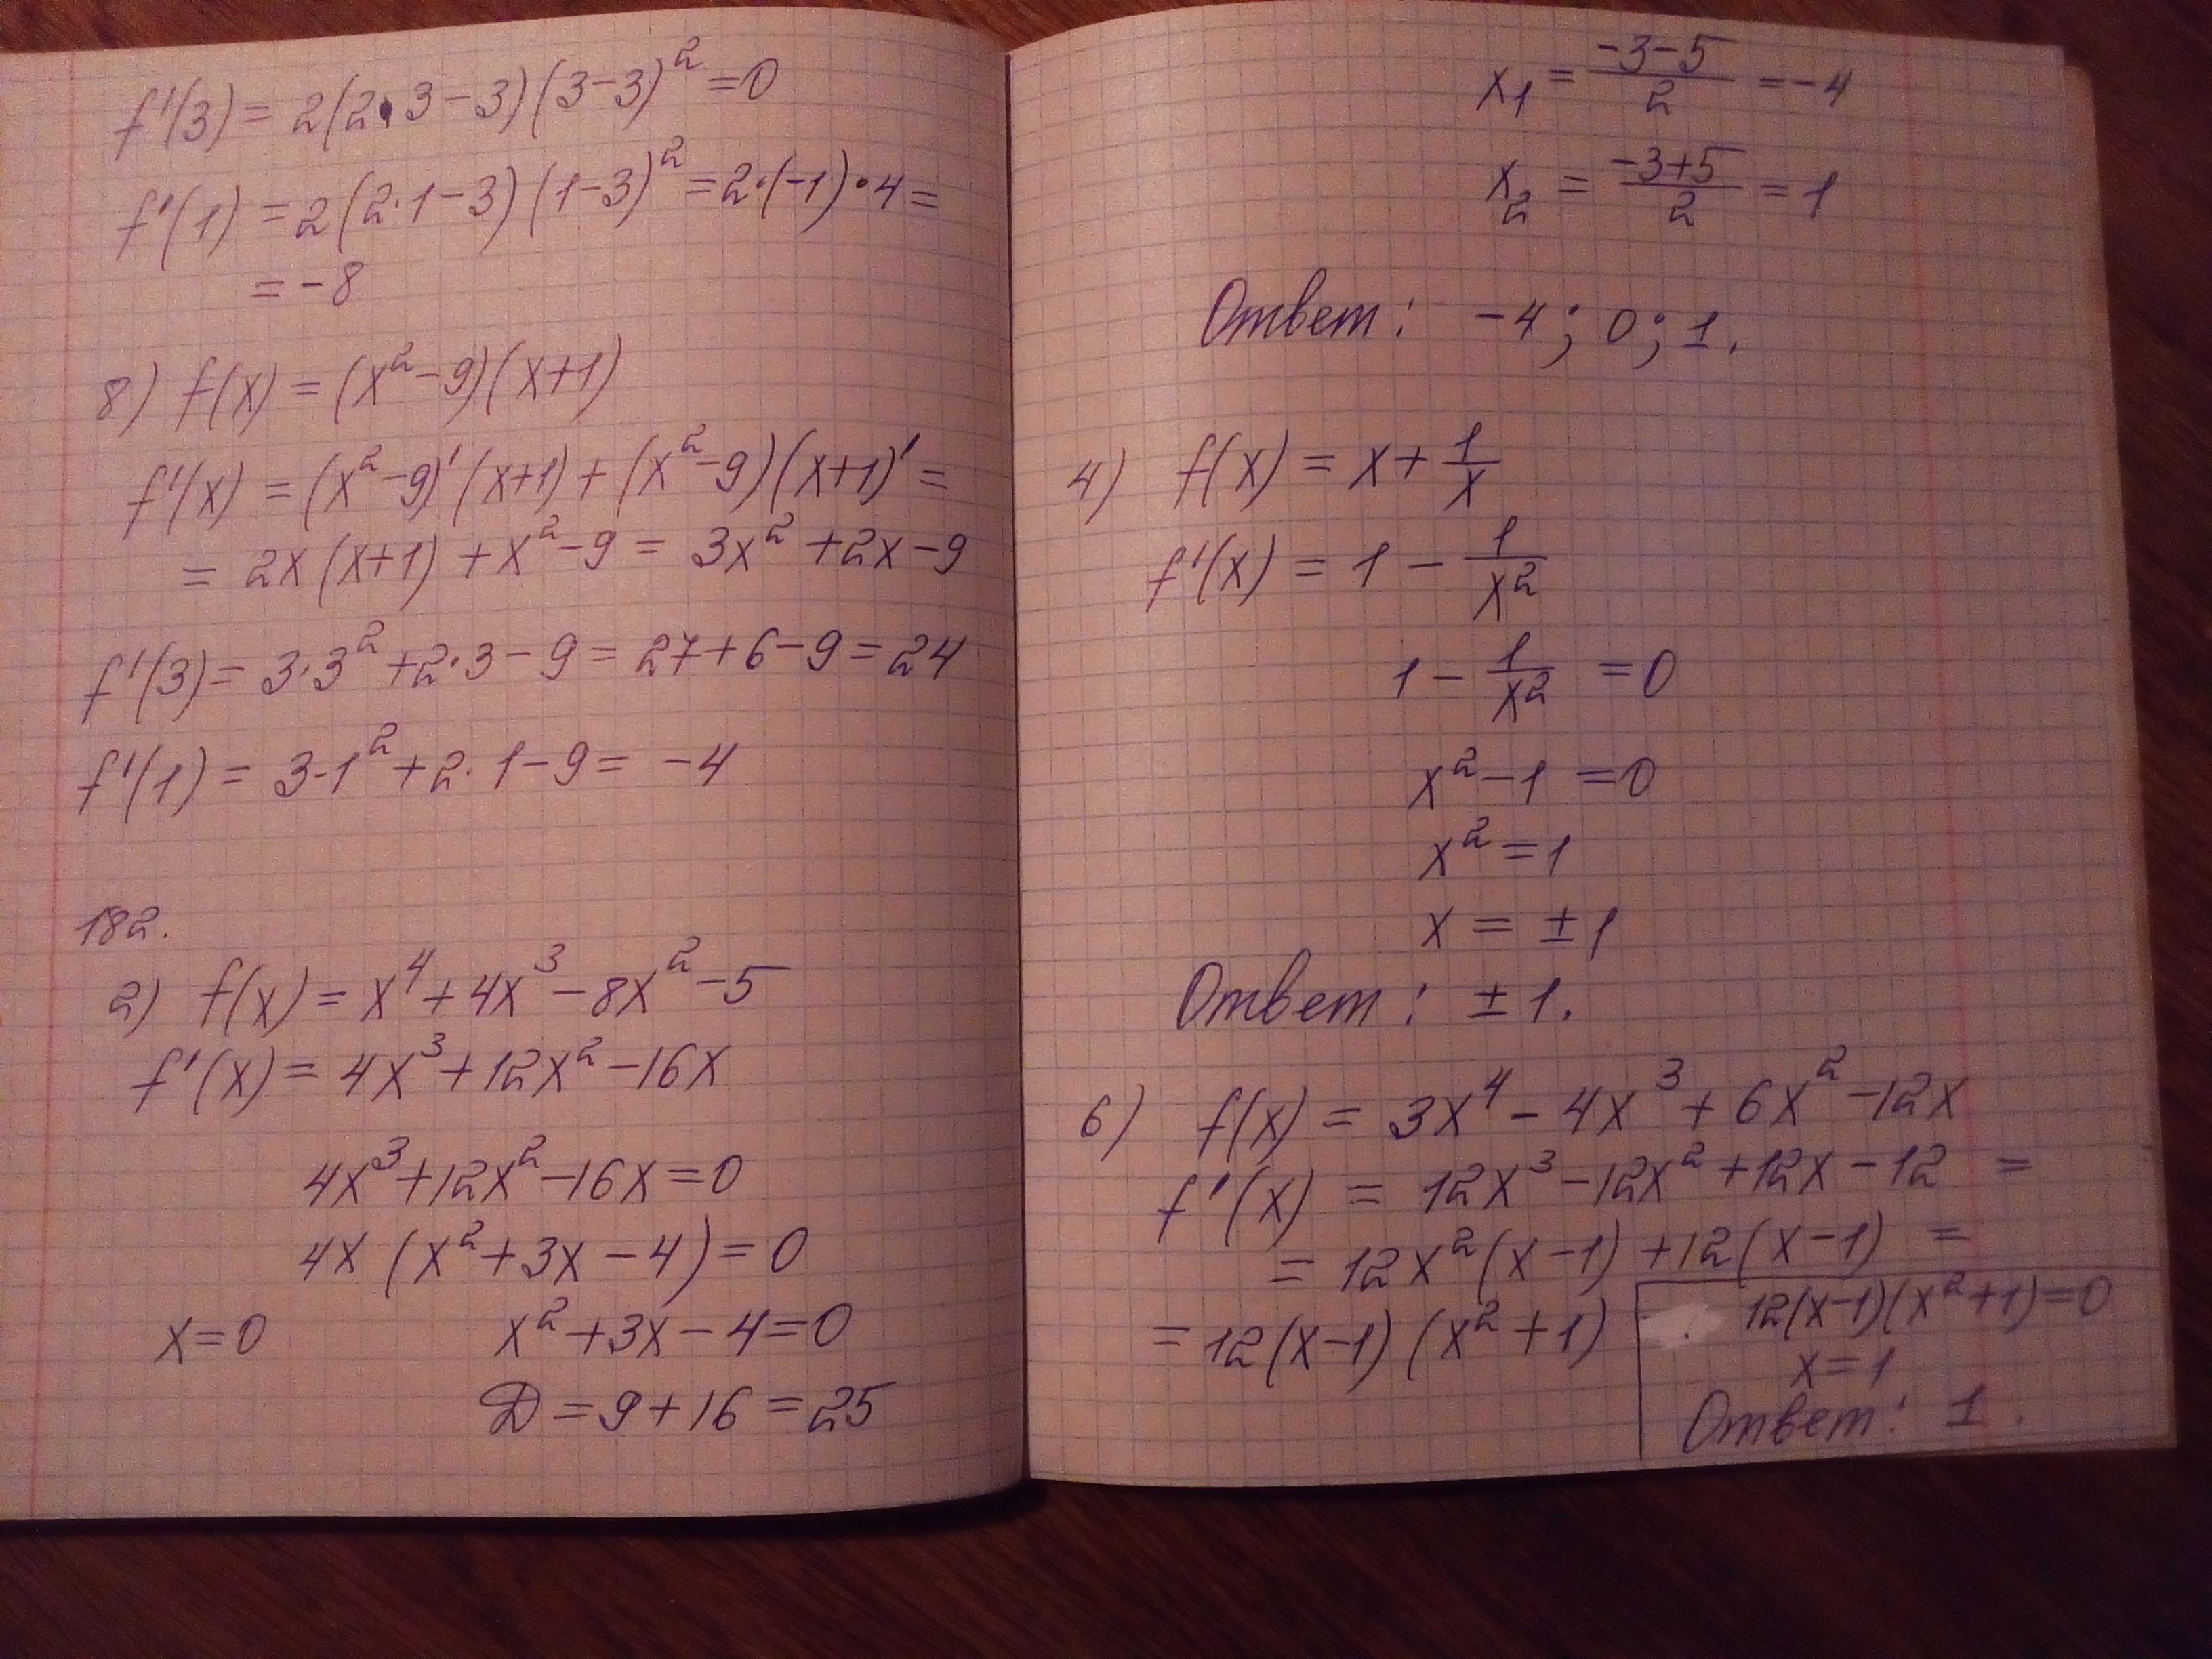 f'(3) = 2(2·3-3)(3-3)² = 0
f'(1) = 2(2·1-3)(1-3)² = 2·(-1)·4 =
= -8
8) f(x) = (x²-9)(x+1)
f'(x) = (x²-9)'(x+1) + (x²-9)(x+1)' =
= 2x(x+1) + x²-9 = 3x² + 2x - 9
f'(3) = 3·3² + 2·3 - 9 = 27 + 6 - 9 = 24
f'(1) = 3·1² + 2·1 - 9 = -4
182.
2) f(x) = x⁴ + 4x³ - 8x² - 5
f'(x) = 4x³ + 12x² - 16x
4x³ + 12x² - 16x = 0
4x (x² + 3x - 4) = 0
x = 0 x² + 3x - 4 = 0
D = 9 + 16 = 25
x₁ = (-3-5)/2 = -4
x₂ = (-3+5)/2 = 1
Ответ: -4; 0; 1.
4) f(x) = x + 1/x
f'(x) = 1 - 1/x²
1 - 1/x² = 0
x² - 1 = 0
x² = 1
x = ±1
Ответ: ±1.
6) f(x) = 3x⁴ - 4x³ + 6x² - 12x
f'(x) = 12x³ - 12x² + 12x - 12 =
= 12x²(x-1) + 12(x-1) =
= 12(x-1)(x²+1)
12(x-1)(x²+1) = 0
x = 1
Ответ: 1.